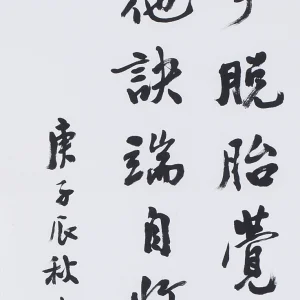 脱胎覺
他訣端自
庚子辰秋